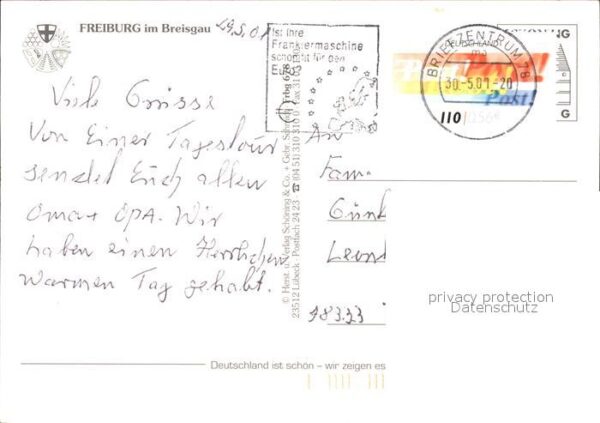 FREIBURG im Breisgau
29.5.01
Ist Ihre
Frankiermaschine
schon fit für den
Euro
BRIEFZENTRUM 78
DEUTSCHLAND
30.-5.01-20
Post!
110
NG
G
Viele Grüsse
Von Einer Tagestour
sendet Euch allen
Oma + Opa. Wir
haben einen Herrlichen
Warmen Tag gehabt.
An
Fam.
Günt
Leon
78333
© Herst. u. Verlag Schöning & Co. + Gebr. Schmidt
23512 Lübeck · Postfach 24 23 · ☎ (04 51) 310 31 0
privacy protection
Datenschutz
Deutschland ist schön – wir zeigen es